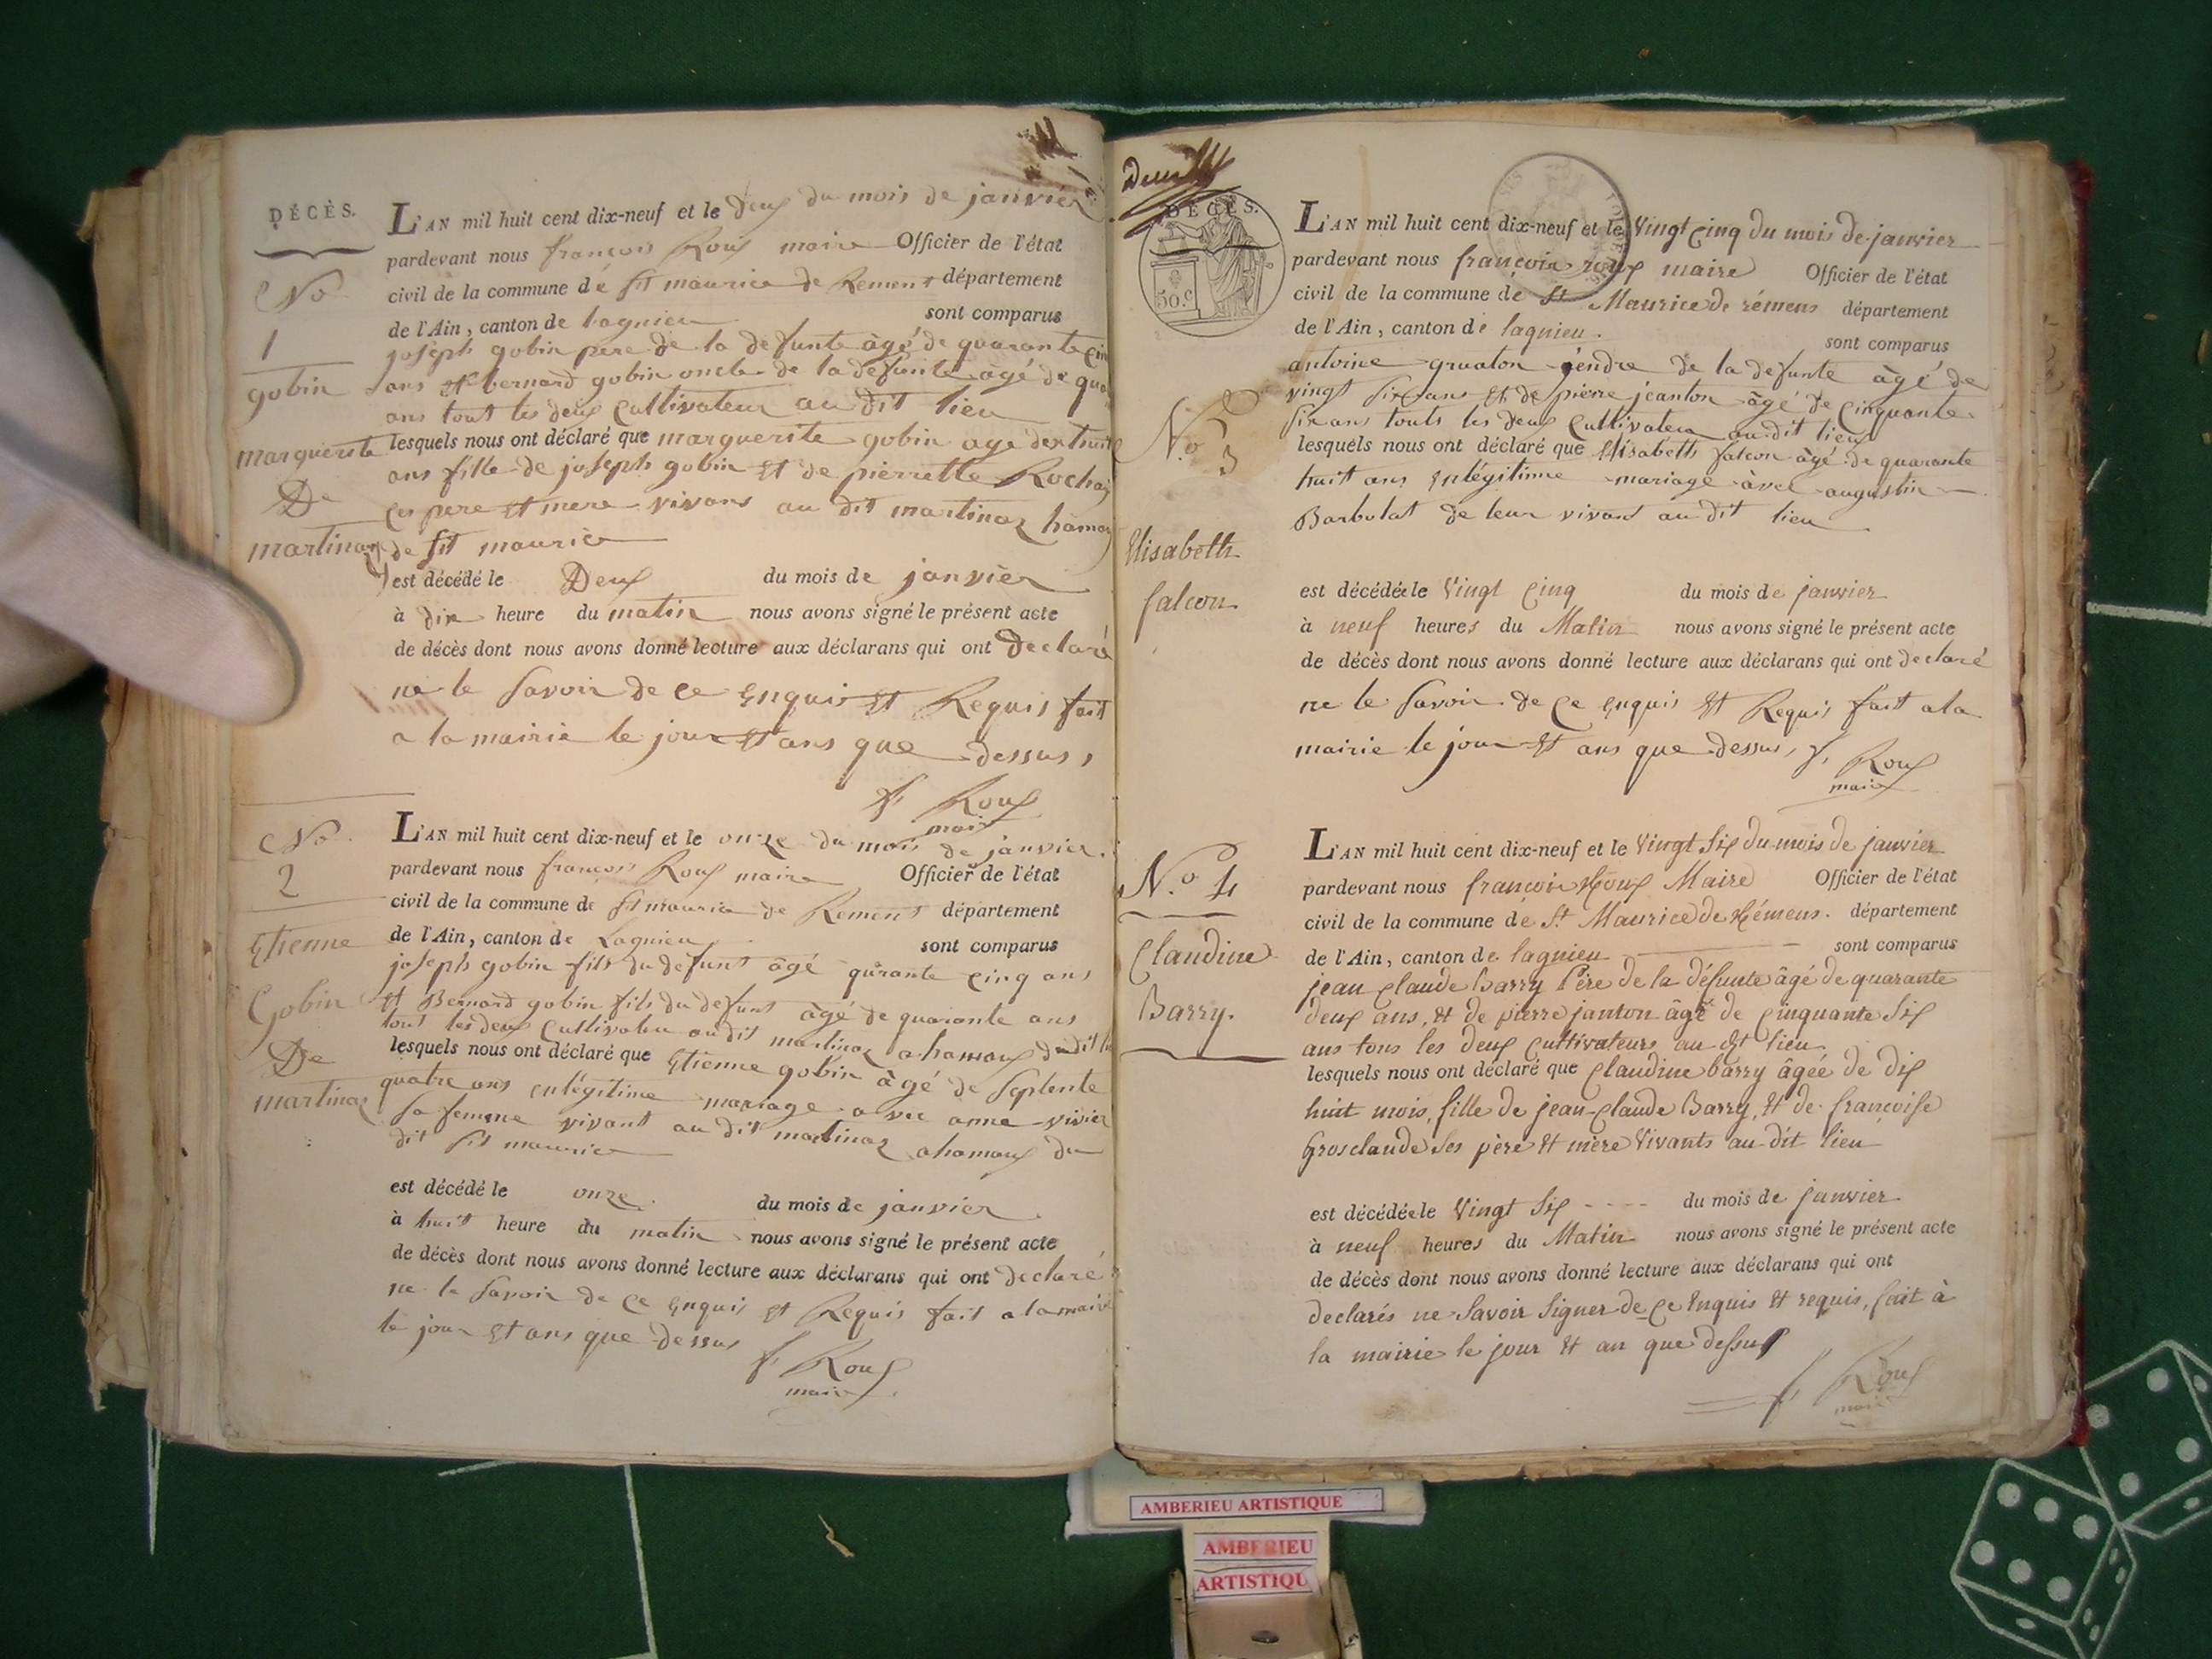 DÉCÈS.
L'AN mil huit cent dix-neuf et le deux du mois de janvier
pardevant nous françois Roux maire Officier de l'état
civil de la commune de st maurice de Remens département
de l'Ain, canton de lagnieu sont comparus
joseph gobin pere de la defunte âgé de quarante cin
ans et bernard gobin oncle de la defunte agé de qua
ans tout les deux Cultivateur au dit lieu
lesquels nous ont déclaré que marguerite gobin age
ans fille de joseph gobin Et de pierrette
Ces pere Et mere vivans au dit martinaz hamau
de st maurice
est décédé le Deux du mois de janvier
à dix heure du matin nous avons signé le présent acte
de décès dont nous avons donné lecture aux déclarans qui ont declaré
ne le Savoir de Ce Enquis Et Requis fait
a la mairie le jour Et ans que dessus,
f Roux
maire
No
1
gobin
marguerite
De
martinaz
L'AN mil huit cent dix-neuf et le onze du mois de janvier.
pardevant nous francois Roux maire Officier de l'état
civil de la commune de st maurice de Remens département
de l'Ain, canton de Lagnieu sont comparus
joseph gobin fils du defunt âgé quarante cinq ans
Et Bernard gobin fils du defunt âgé de quarante ans
tous les deux Cultivateu au dit martinaz ahamaux du dit
lesquels nous ont déclaré que Etienne gobin âgé de Septente
quatre ans enlégitime mariage avec anne vivier
Sa femme vivant au dit martinaz ahamaux du
dit st maurice
est décédé le onze. du mois de janvier
à huit heure du matin nous avons signé le présent acte
de décès dont nous avons donné lecture aux déclarans qui ont declaré
ne le Savoir de Ce Enquis Et Requis fait a la mairie
le jour Et ans que dessus
f Roux
maire
No.
2
Etienne
Gobin
De
martinaz
DÉCÈS.
50.c
L'AN mil huit cent dix-neuf et le Vingt Cinq du mois de janvier
pardevant nous françois roux maire Officier de l'état
civil de la commune de St Maurice de rémens département
de l'Ain, canton de lagnieu. sont comparus
antoine gendre de la defunte âgé de
vingt Six ans Et de pierre jeanton âgé de Cinquante
Six ans touts les deux Cultivateur au dit lieu
lesquels nous ont déclaré que Elisabeth falcon âgé de quarante
huit ans Enlégitime mariage avec augustin
Barbolat de leur vivant au dit lieu
est décédée le Vingt Cinq du mois de janvier
à neuf heures du Matin nous avons signé le présent acte
de décès dont nous avons donné lecture aux déclarans qui ont declaré
ne le Savoir de Ce Enquis Et Requis fait a la
mairie le jour Et ans que dessus, f, Roux
maire
No 3
Elisabeth
falcon
L'AN mil huit cent dix-neuf et le Vingt Six du mois de janvier
pardevant nous françois Roux Maire Officier de l'état
civil de la commune de St Maurice de Rémens. département
de l'Ain, canton de lagnieu sont comparus
jean Claude Barry Père de la défunte âgé de quarante
deux ans, et de pierre janton âgé de Cinquante Six
ans tous les deux Cultivateurs au dt lieu
lesquels nous ont déclaré que Claudine barry âgée de dix
huit mois, fille de jean Claude Barry, Et de françoise
Grosclaude Ses père Et mère Vivants au dit lieu
est décédée le Vingt Six du mois de janvier
à neuf heures du Matin nous avons signé le présent acte
de décès dont nous avons donné lecture aux déclarans qui ont
declarés ne Savoir Signer de Ce Enquis Et requis, fait à
la mairie le jour Et an que dessus
f Roux
maire
No 4
Claudine
Barry.
AMBERIEU ARTISTIQUE
AMBERIEU
ARTISTIQU